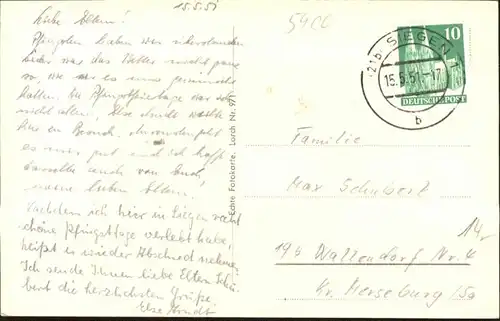 15.5.51
Liebe Eltern!
Pfingsten haben wir überstanden
leider war das Wetter nicht ganz
so, wie wir es uns gewünscht
hatten. Die Pfingstfeiertage war ich
nicht allein, Else Arndt weilte
hier zu Besuch.
es mir gut und ich hoffe
dasselbe auch von Euch,
meine lieben Eltern.
Nachdem ich hier in Siegen recht
schöne Pfingsttage verlebt habe,
heißt es wieder Abschied nehmen.
Ich sende Ihnen liebe Eltern Schu-
bert die herzlichsten Grüße.
Else Arndt
Echte Fotokarte. Lorch Nr. 971
54CC
(21b) SIEGEN
15.5.51.-17
b
10
DEUTSCHE POST
Familie
Max Schubert
19a Wallendorf Nr. 4
Kr. Merseburg/Sa
14,-